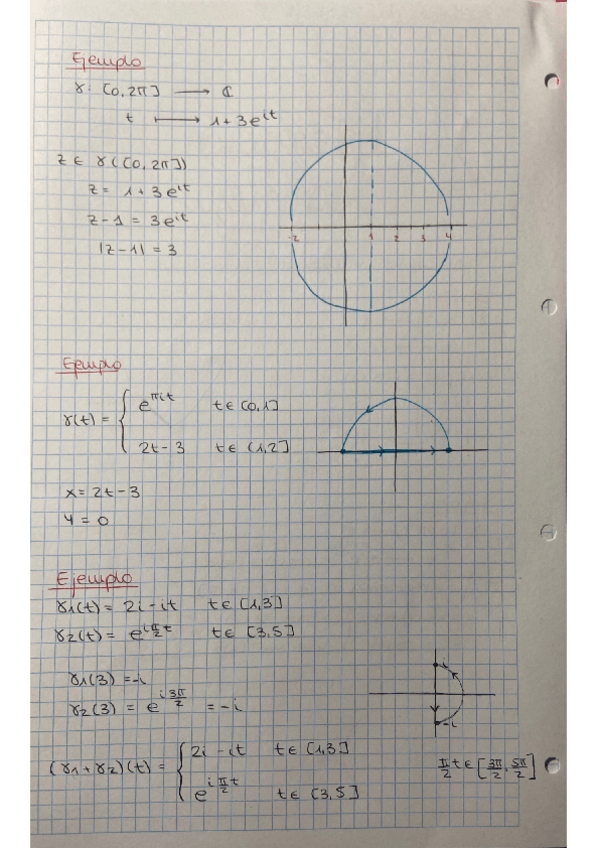 Ejemplo
γ: [0, 2π] ⟶ ℂ
t ⟼ 1 + 3e^{it}
z ∈ γ([0, 2π])
z = 1 + 3e^{it}
z - 1 = 3e^{it}
|z - 1| = 3
-2 1 2 3 4
Ejemplo
γ(t) = { e^{πit} t ∈ [0,1]
2t - 3 t ∈ (1,2]
x = 2t - 3
y = 0
Ejemplo
γ1(t) = 2i - it t ∈ [1,3]
γ2(t) = e^{i π/2 t} t ∈ [3,5]
γ1(3) = -i
γ2(3) = e^{i 3π/2} = -i
-i
(γ1 + γ2)(t) = { 2i - it t ∈ [1,3]
e^{i π/2 t} t ∈ (3,5]
π/2 t ∈ [3π/2, 5π/2]